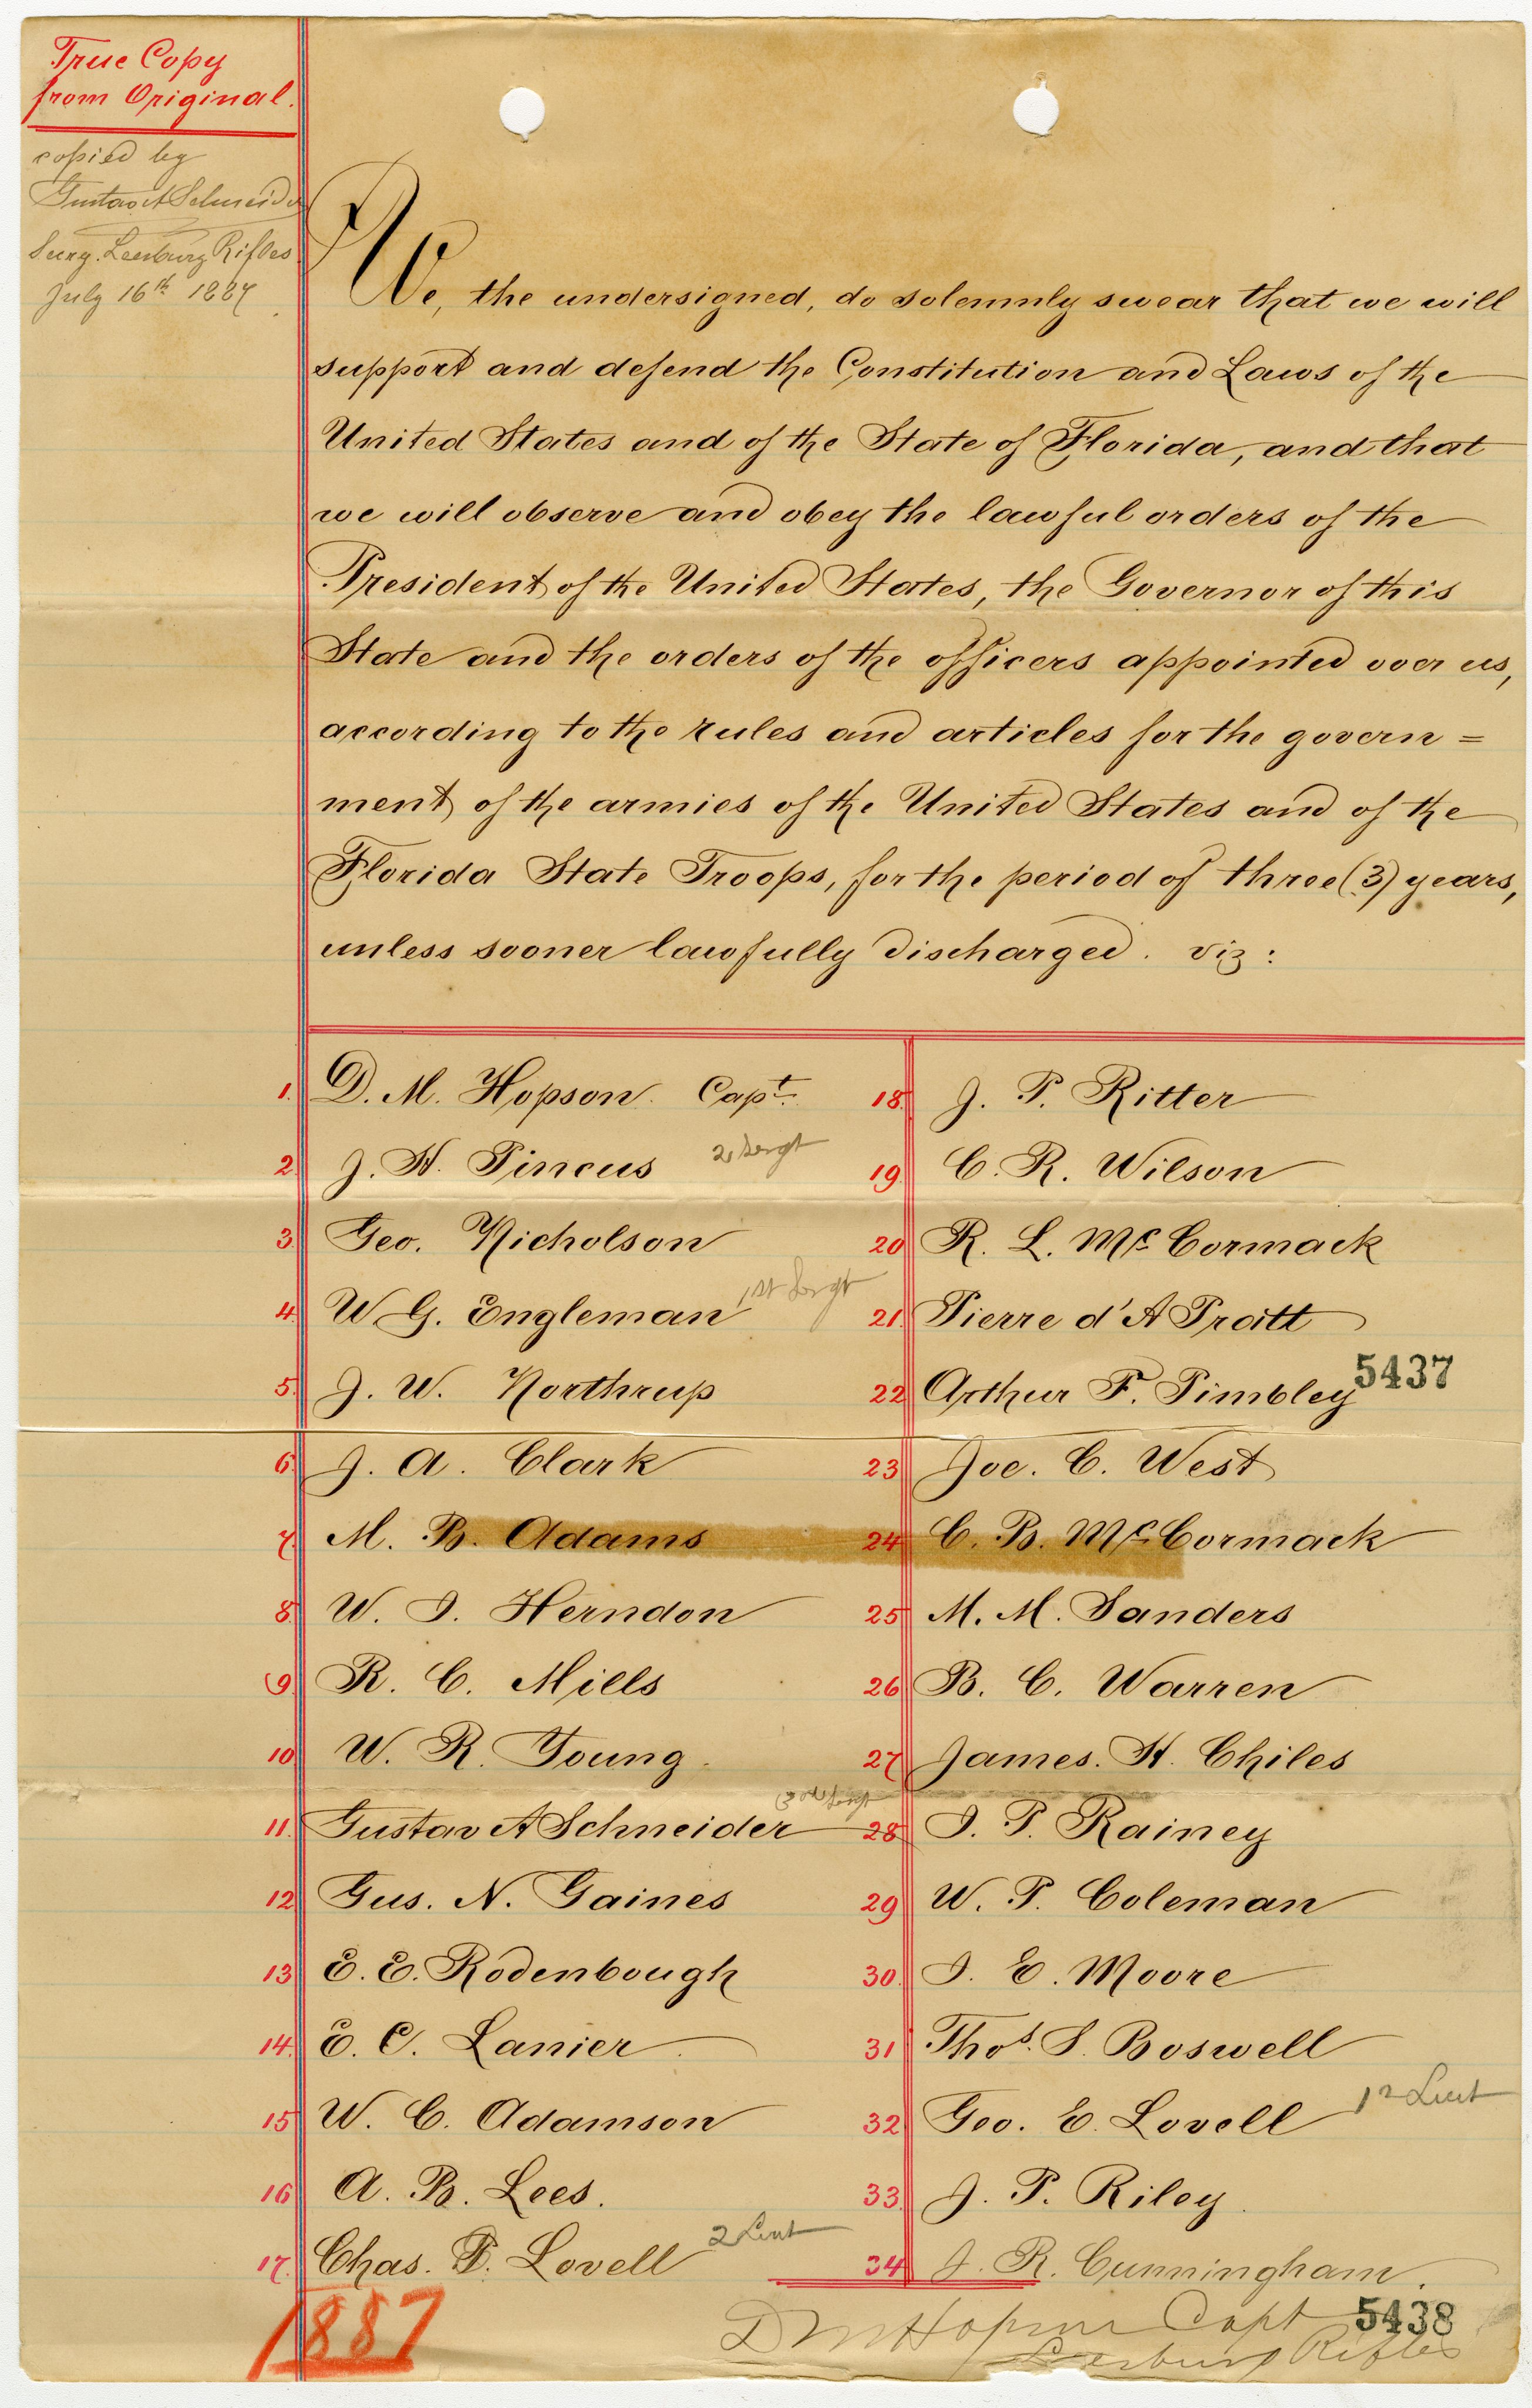 True Copy
from Original.
copied by
Gustav A Schneider
Secry. Leesburg Rifles
July 16th 1887
We, the undersigned, do solemnly swear that we will
support and defend the Constitution and Laws of the
United States and of the State of Florida, and that
we will observe and obey the lawful orders of the
President of the United States, the Governor of this
State and the orders of the officers appointed over us,
according to the rules and articles for the govern=
ment of the armies of the United States and of the
Florida State Troops, for the period of three (3) years,
unless sooner lawfully discharged. viz:
1. D. M. Hopson. Capt.
2. J. H. Pincus 2 Sergt
3. Geo. Nicholson
4. W G. Engleman 1st Sergt
5. J. W. Northrup
6. J. A. Clark
7. M. B. Adams
8. W. I. Herndon
9. R. C. Mills
10 W. R. Young.
11. Gustav A Schneider 3rd Sergt
12 Gus. N. Gaines
13 E. E. Rodenbough
14. E. C. Lanier.
15 W. C. Adamson
16 A. B. Lees.
17. Chas. F. Lovell 2 Lieut
18. J. P. Ritter
19. C. R. Wilson
20 R. L. McCormack
21. Pierre d'A Pratt
22 Arthur F. Pimbley
5437
23 Joe. C. West
24 C. B. McCormack
25 M. M. Sanders
26 B. C. Warren
27 James. H. Chiles
28 I. P. Rainey
29 W. P. Coleman
30. I. E. Moore
31 Thos. S. Boswell
32 Geo. E. Lovell 1st Lieut
33. J. P. Riley.
34 J. R. Cunningham.
1887
D M Hopson Capt
5438
Leesburg Rifles